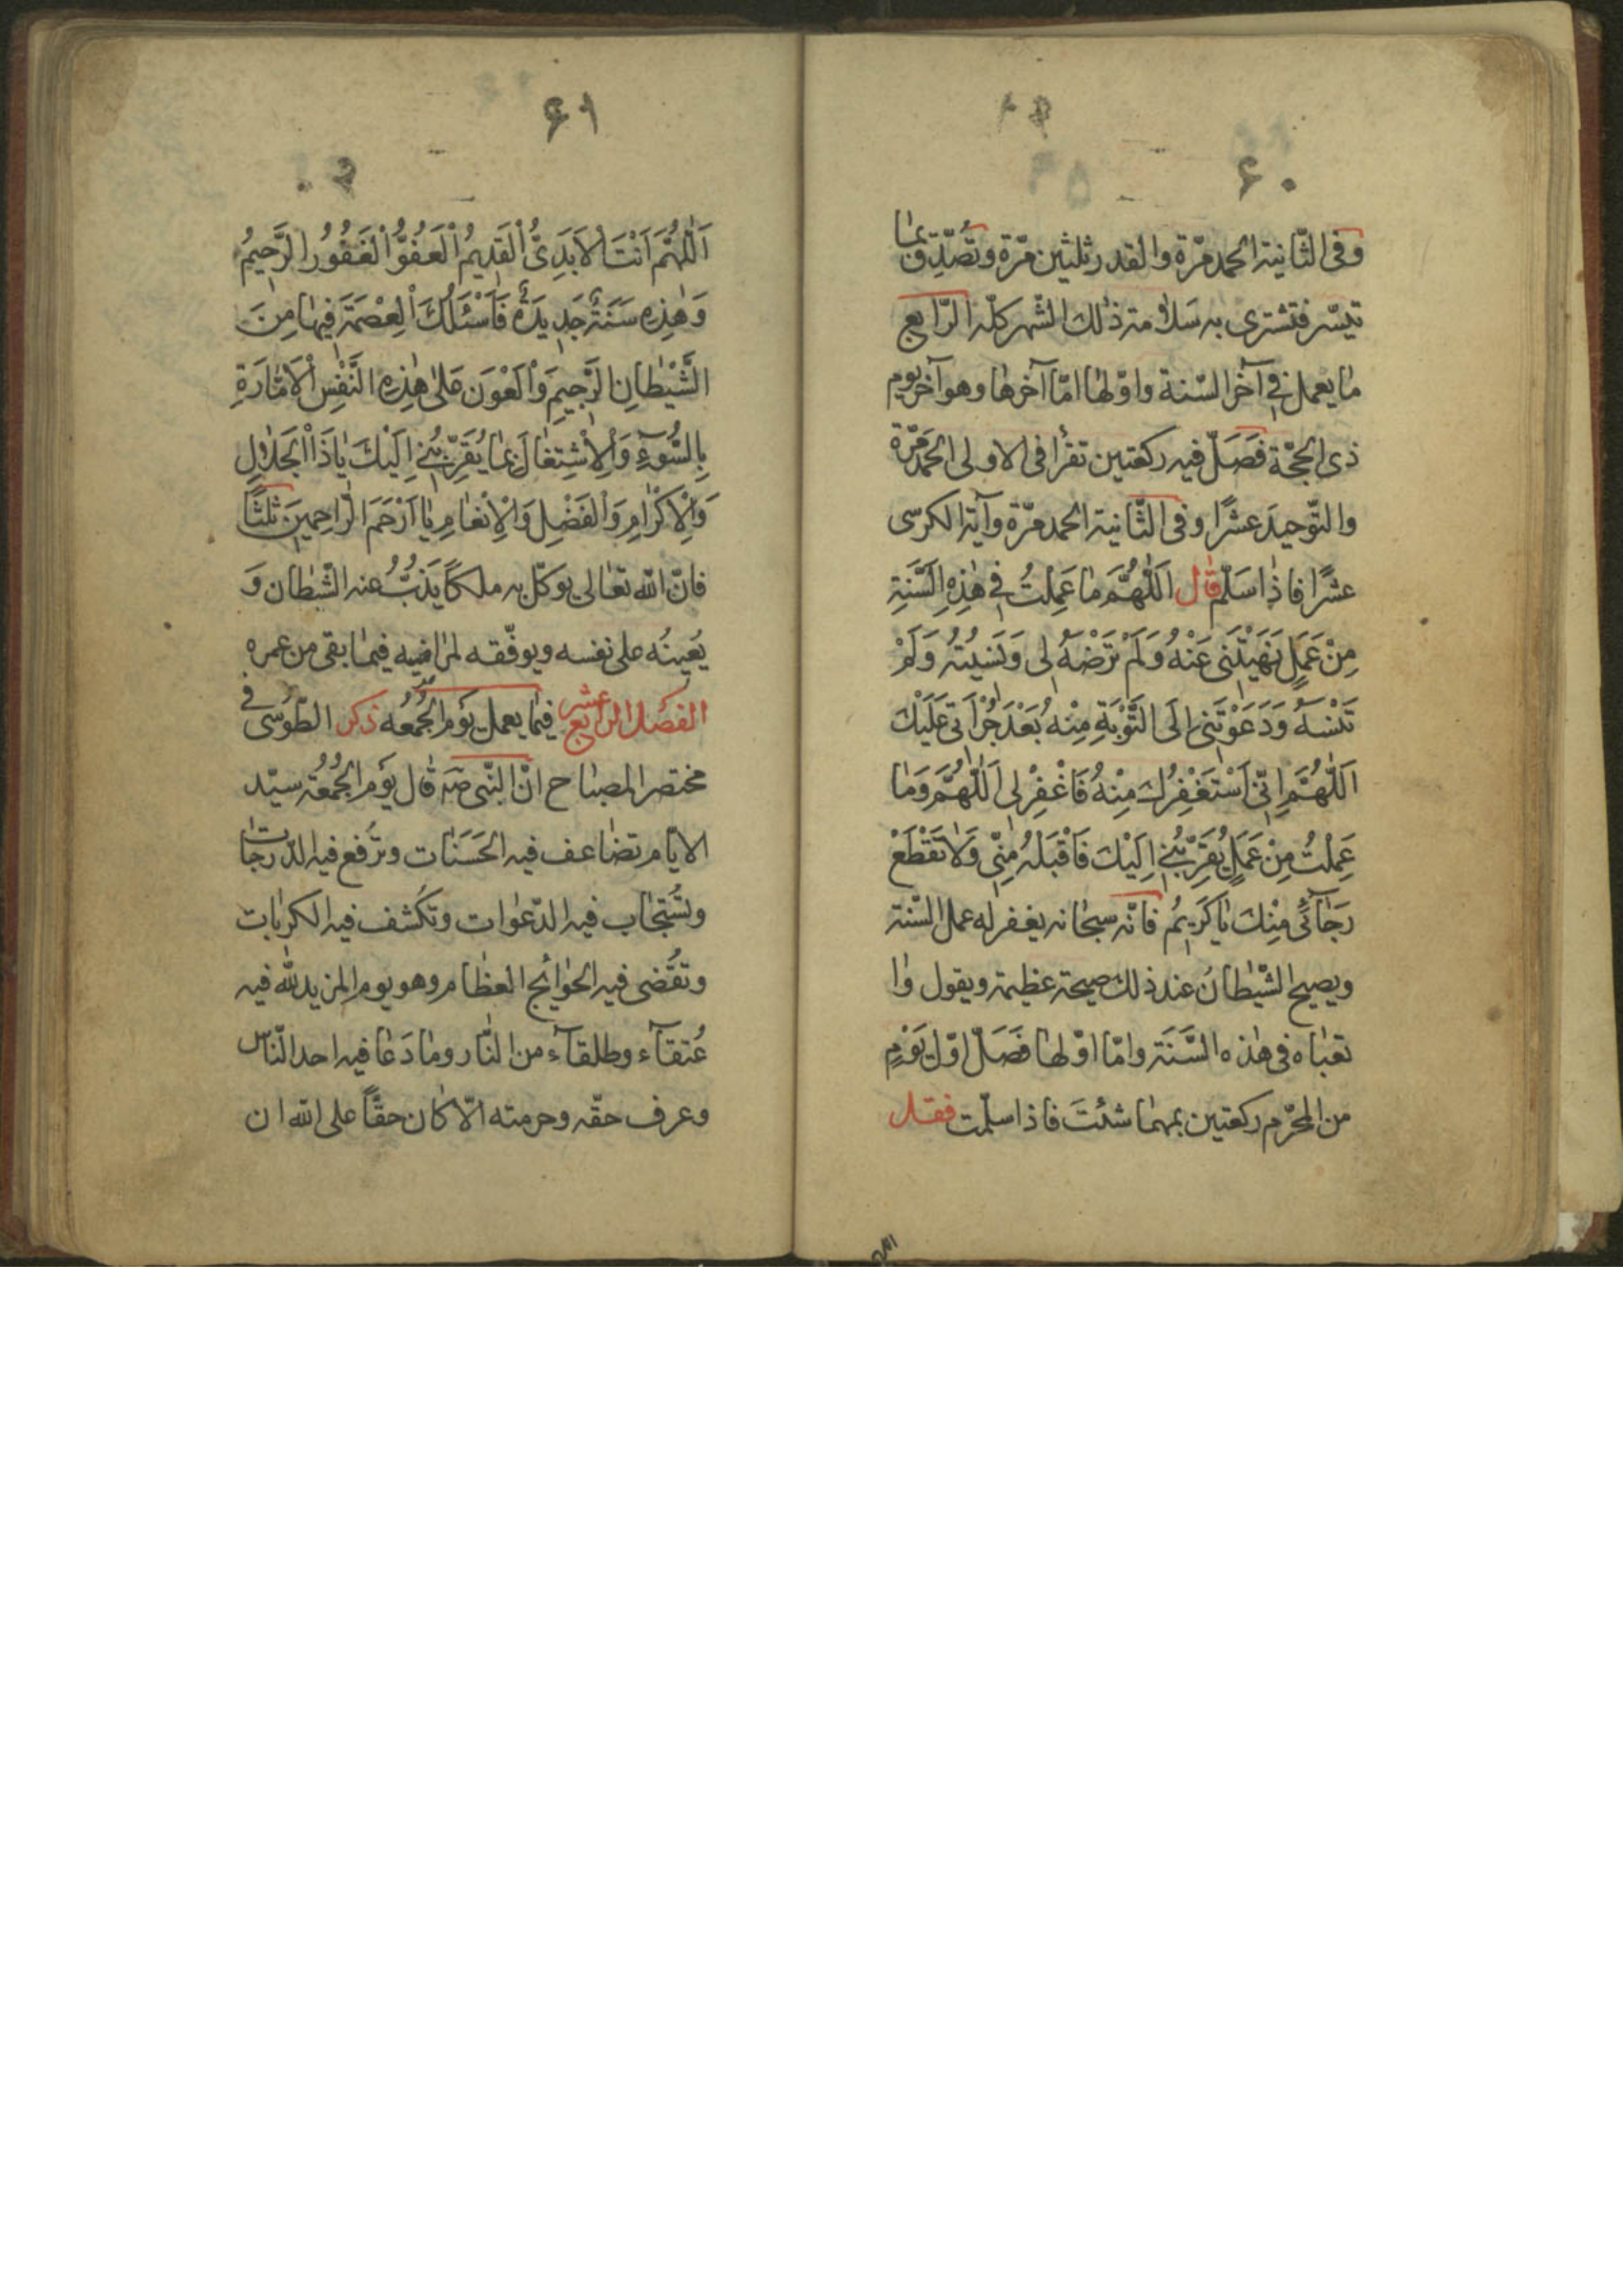 ۶۰
وفى الثّانية الحمد مرّة والقدر ثلثين مرّة وتُصّدِق بمٰا
تيسّر فتشترى به سَلامة ذٰلك الشّهر كلّه الرّابع
مٰا يعمل فِى آخر السّنة واوّلهٰا امّا آخرهٰا وهو آخر يوم
ذى الحجّة فَصَلّ فيه ركعتين تقرأ فى الاولى الحَمد مَرّة
والتّوحيدَ عشرًا وفى الثّانية الحمد مرّة وآية الكرسى
عشرًا فاذٰا سَلّم قٰال اَللّٰهُمَّ مٰا عَمِلْتُ فِى هٰذِهِ السَّنَةِ
مِنْ عَمَلٍ نَهَيْتَنى عَنْهُ وَلَمْ تَرْضَهُ لى وَنَسيتُهُ وَلَمْ
تَنْسَهُ وَدَعَوْتَنى اِلَى التَّوْبَةِ مِنْهُ بَعْدَ جُرْاَتى عَلَيْكَ
اَللّٰهُمَّ اِنّى اَسْتَغْفِرُكَ مِنْهُ فَاغْفِرْ لى اَللّٰهُمَّ وَمٰا
عَمِلْتُ مِنْ عَمَلٍ يُقَرِّبُنى اِلَيْكَ فَاقْبَلْهُ مِنّى وَلاٰ تَقْطَعْ
رَجٰائى مِنْكَ يٰا كَرِيمُ فانّه سبحٰانه يغفر له عمل السّنة
ويصيح الشّيْطٰانُ عند ذلك صيحة عظيمة ويقول وٰا
تعبٰاه فى هٰذه السَّنَة وامّا اوّلهٰا فَصَلّ اوّل يَوْمٍ
من المحّرم ركعتين بمهمٰا شئتَ فاذا سلّمت فقل
۶۱
اَللّٰهُمَّ اَنْتَ الْاَبَدِىُّ الْقَدِيمُ الْعَفُوُّ الْغَفُورُ الرَّحِيمُ
وَهٰذِهِ سَنَةٌ جَدِيدَةٌ فَاَسْئَلُكَ الْعِصْمَةَ فِيهٰا مِنَ
الشَّيْطٰانِ الرَّجِيمِ وَالْعَوْنَ عَلىٰ هٰذِهِ النَّفْسِ الْاَمّٰارَةِ
بِالسُّوۤءِ وَالْاِشْتِغٰالَ بِمٰا يُقَرِّبُنى اِلَيْكَ يٰا ذَا الْجَلاٰلِ
وَالْاِكْرٰامِ وَالْفَضْلِ وَالْاِنْعٰامِ يٰا اَرْحَمَ الرّٰاحِمِينَ ثلثًا
فانّ اللّٰه تعٰالى يوكّل به ملكًا يَذُبُّ عنه الشّيطٰان وَ
يُعينُه على نفسه ويوفّقه لمرٰاضيه فيمٰا بقى من عمره
الفصل الرّابع عشر فيمٰا يعمل يَوم الجُمُعه ذكر الطّوسى فى
مختصر المصبٰاح انّ النّبى صَه قٰال يَوم الجُمُعة سيّد
الايّٰام تضٰاعف فيه الحَسَنٰات وترُفع فيه الدّرجٰات
وتُستجٰاب فيه الدّعوٰات وتُكشف فيه الكربٰات
وتُقضى فيه الحوٰائج العظٰام وهو يوم المزيد للّٰه فيه
عُتقآء وطلقآء من النّٰار ومٰا دَعٰا فيه احد النّاس
وعرف حقّه وحرمته الّا كٰان حقًّا على اللّٰه ان